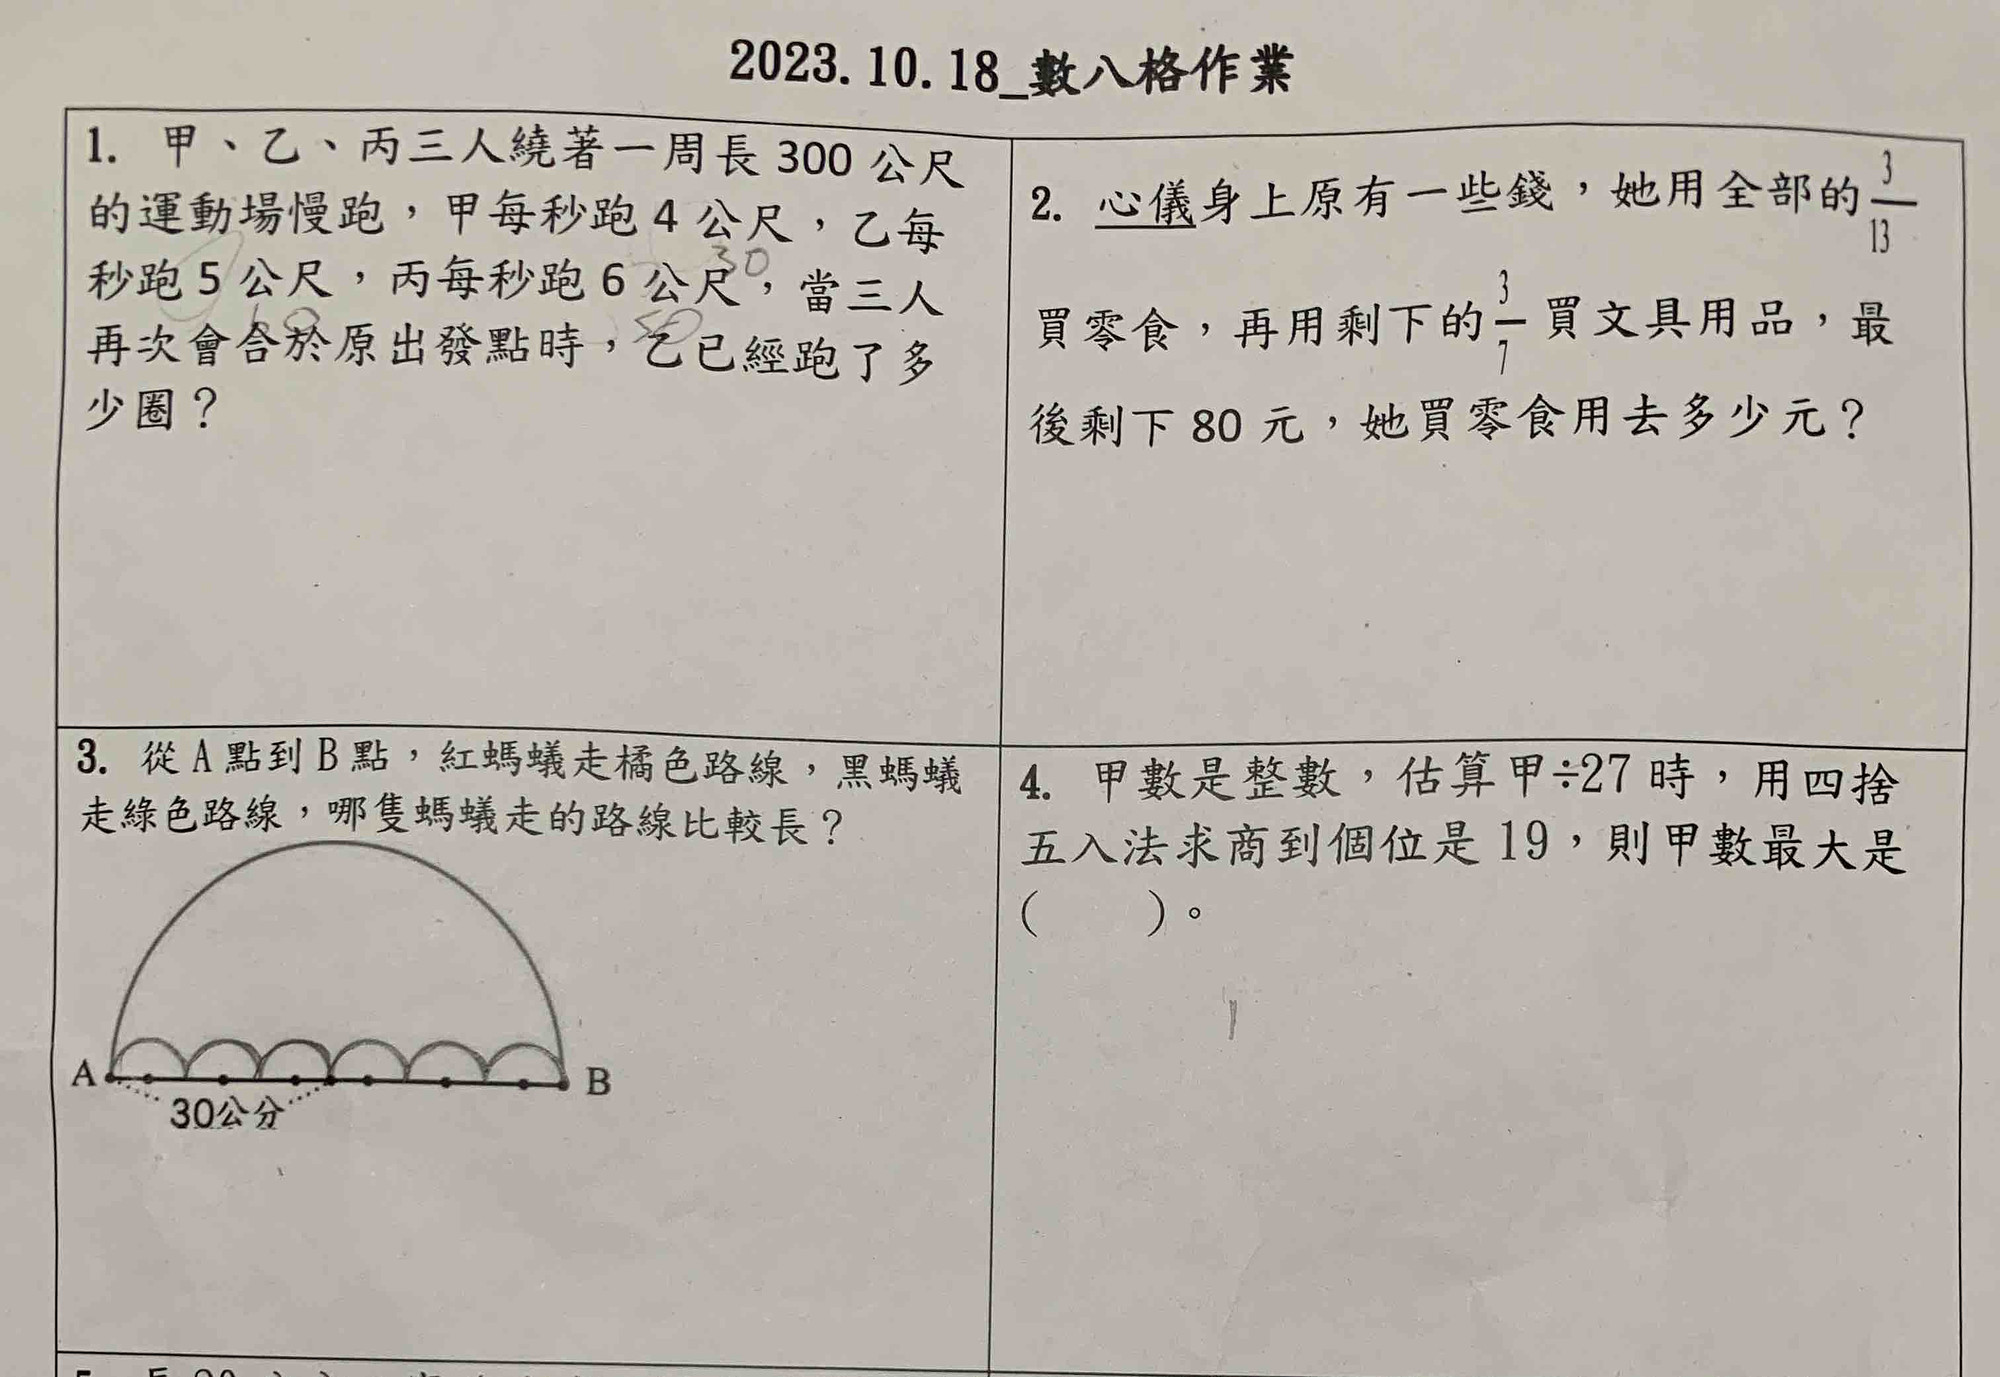 2023.10.18_數八格作業
1. 甲、乙、丙三人繞著一周長 300 公尺
的運動場慢跑，甲每秒跑 4 公尺，乙每
秒跑 5 公尺，丙每秒跑 6 公尺，當三人
30
再次會合於原出發點時，乙已經跑了多
50
少圈？
2. 心儀身上原有一些錢，她用全部的 3/13
買零食，再用剩下的 3/7 買文具用品，最
後剩下 80 元，她買零食用去多少元？
3. 從 A 點到 B 點，紅螞蟻走橘色路線，黑螞蟻
走綠色路線，哪隻螞蟻走的路線比較長？
A
B
30公分
4. 甲數是整數，估算甲÷27 時，用四捨
五入法求商到個位是 19，則甲數最大是
(　　)。